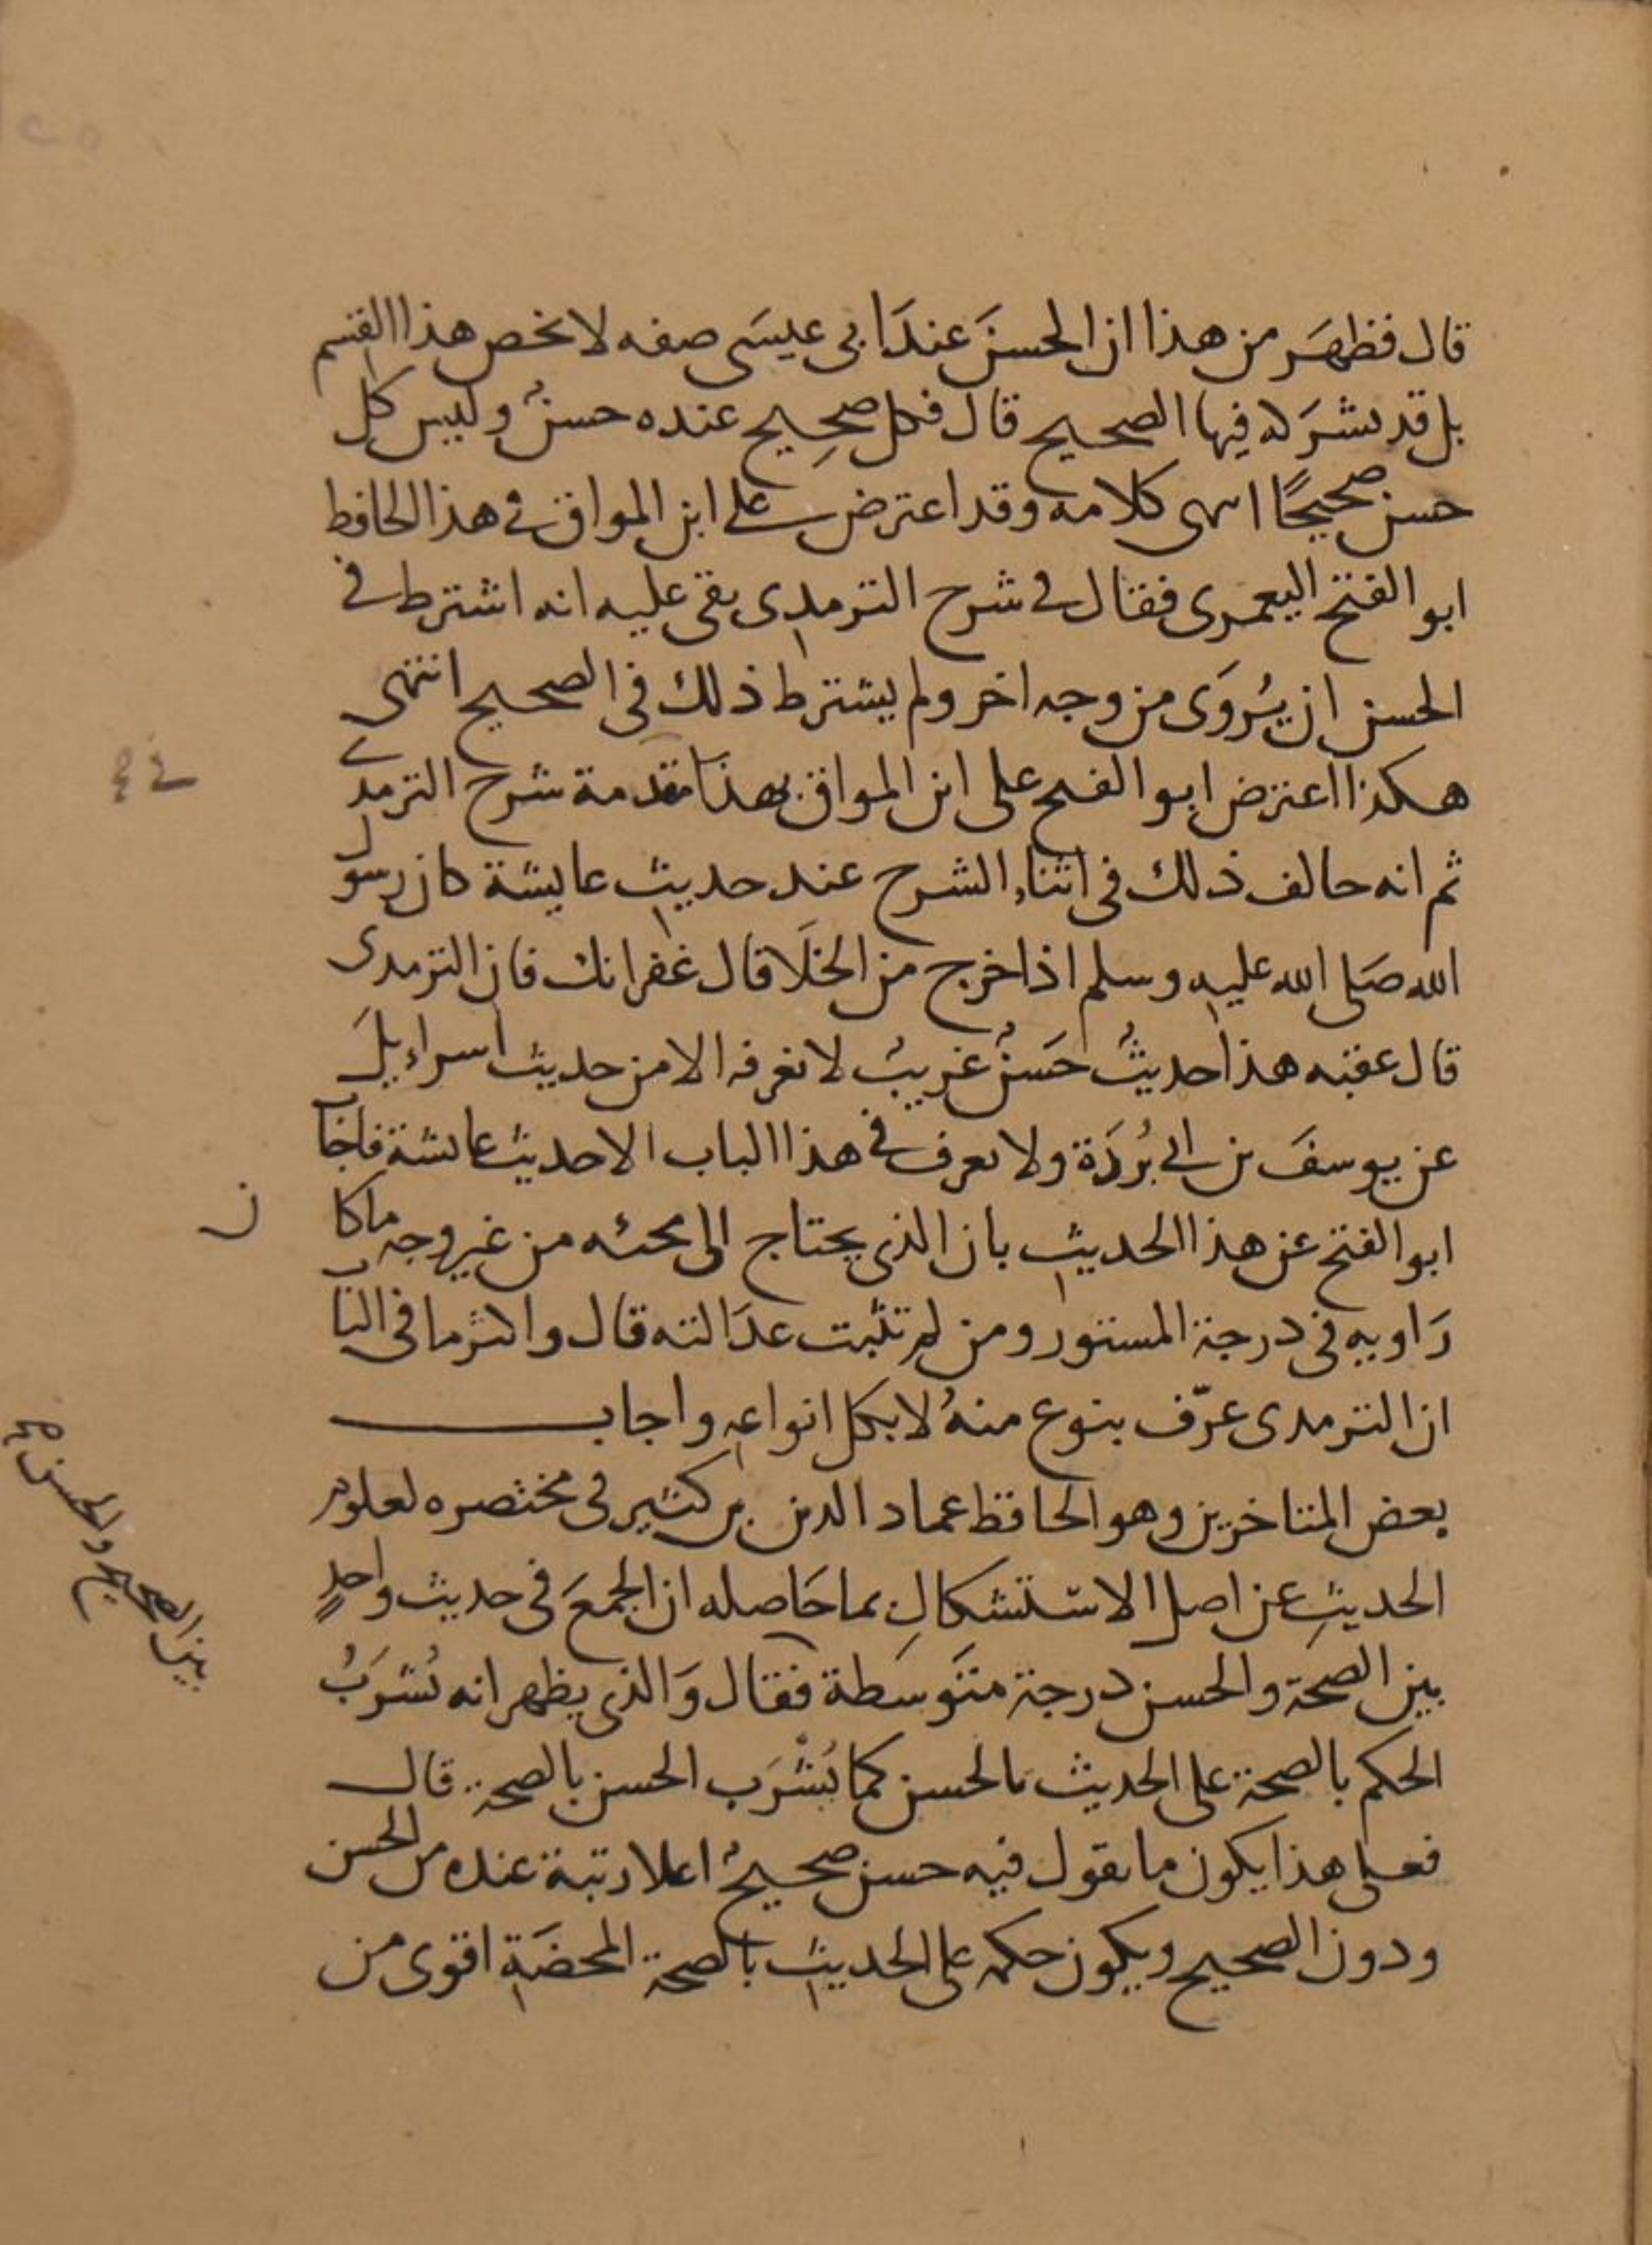 قال فظهَر من هذا ان الحسنَ عندَ ابى عيسَى صفه لا تخص هذا القسم
بل قد يشرَكه فيها الصحيح قال فكل صحِيح عنده حسنٌ وليس كل
حسن صحيحًا انتهى كلامه وقد اعترض على ابن المواق في هذا الحافظ
ابو الفتح اليعمرى فقال في شرح الترمدى بقى عليه انه اشترط في
الحسن ان يُروَى من وجه اخر ولم يشترط ذلك فى الصحيح انتهى
هكذا اعترض ابو الفتح على ابن المواق بهذا مقدمة شرح الترمدى
ثم انه خالف ذلك فى اثناء الشرح عند حديث عايشة كان رسول
الله صَلى الله عليه وسلم اذا خرج من الخلَا قال غفرانك فان الترمدى
قال عقبه هذا حديثٌ حَسنٌ غريبٌ لا نعرفه الا من حديث اسراءيلَ
عن يوسفَ بن ابي بُردَة ولا نعرف في هذا الباب الا حديث عائشة فاجاب
ابو الفتح عن هذا الحديث بان الذى يحتاج الى مجئه من غير وجه ما كان
رَاويه فى درجة المستور ومن لم تثبت عدَالته قال واكثر ما فى الباب
ان الترمدى عرّف بنوع منهُ لا بكل انواعه واجاب
بعض المتاخرين وهو الحافظ عماد الدين بن كثير فى مختصره لعلوم
الحديثِ عن اصل الاستشكالِ بما حَاصله ان الجمعَ فى حديث واحدٍ
بين الصحة والحسن درجة متوسَطة فقال وَالذى يظهر انه يُشرَبُ
الحكم بالصحة على الحديث بالحسن كما يُشْرَب الحسن بالصحة قال
فعلى هذا يكون ما يقول فيه حسن صحيحٌ اعلا رتبة عنده من الحسن
ودون الصحيح ويكون حكمه على الحديث بالصحة المحضَة اقوى من
في
بين الصحيح والحسن